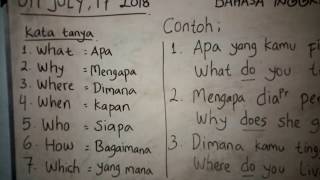 JULY, 17 2018
Kata tanya
1. What = Apa
2. Why = Mengapa
3. Where = Dimana
4. When = kapan
5. Who = Siapa
6. How = Bagaimana
7. Which = yang mana
BAHASA
Contoh :
1. Apa yang kamu
What do you
2. Mengapa dia pr
Why does she
3. Dimana kamu
Where do you